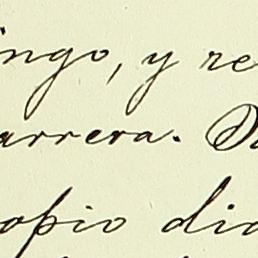 ingo, y re
arrera. D
opio dia